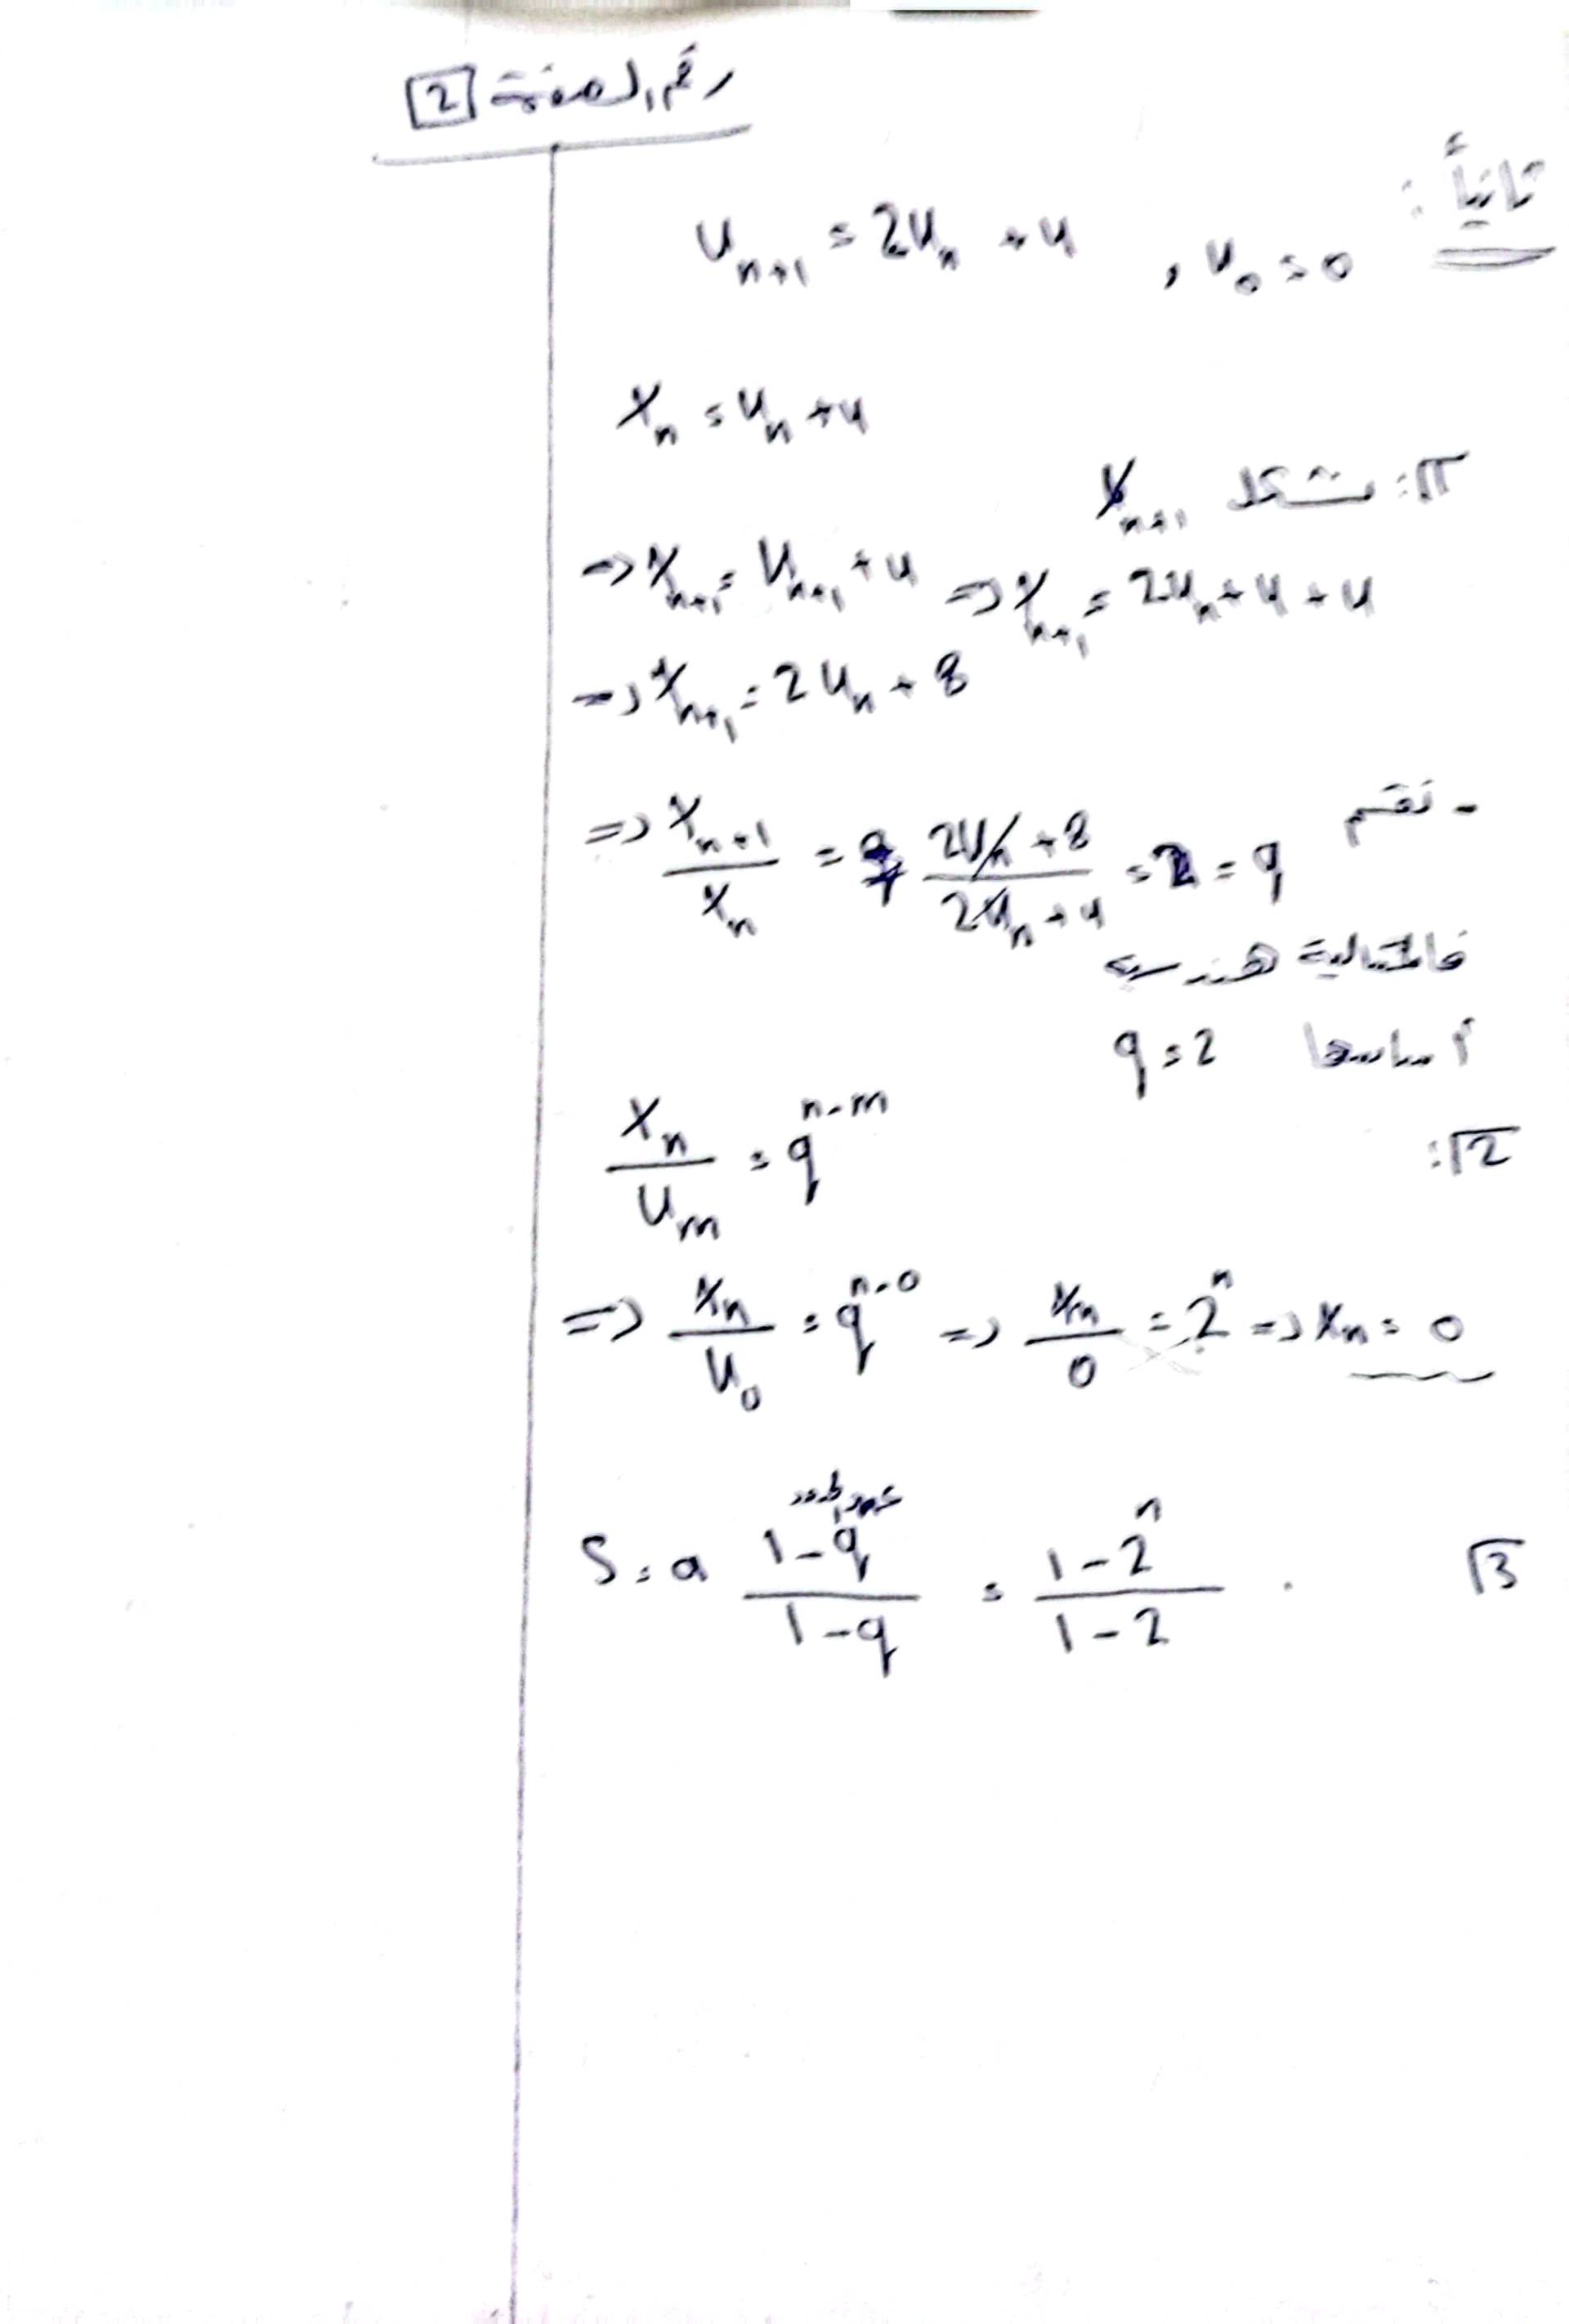 رقم الصفحة 2
ثانياً:
U_{n+1} = 2U_n + 4 , U_0 = 0
X_n = U_n + 4
1: نشكل X_{n+1}
=> X_{n+1} = U_{n+1} + 4 => X_{n+1} = 2U_n + 4 + 4
=> X_{n+1} = 2U_n + 8
- نقسم
=> X_{n+1} / X_n = (2U_n + 8) / (2U_n + 4) = 2 = q
فالمتتالية هندسية
أساسها q = 2
2: X_n / U_m = q^{n-m}
=> X_n / U_0 = q^{n-0} => X_n / 0 = 2^n => X_n = 0
3 S = a (1 - q^{عدد الحدود}) / (1 - q) = (1 - 2^n) / (1 - 2) .